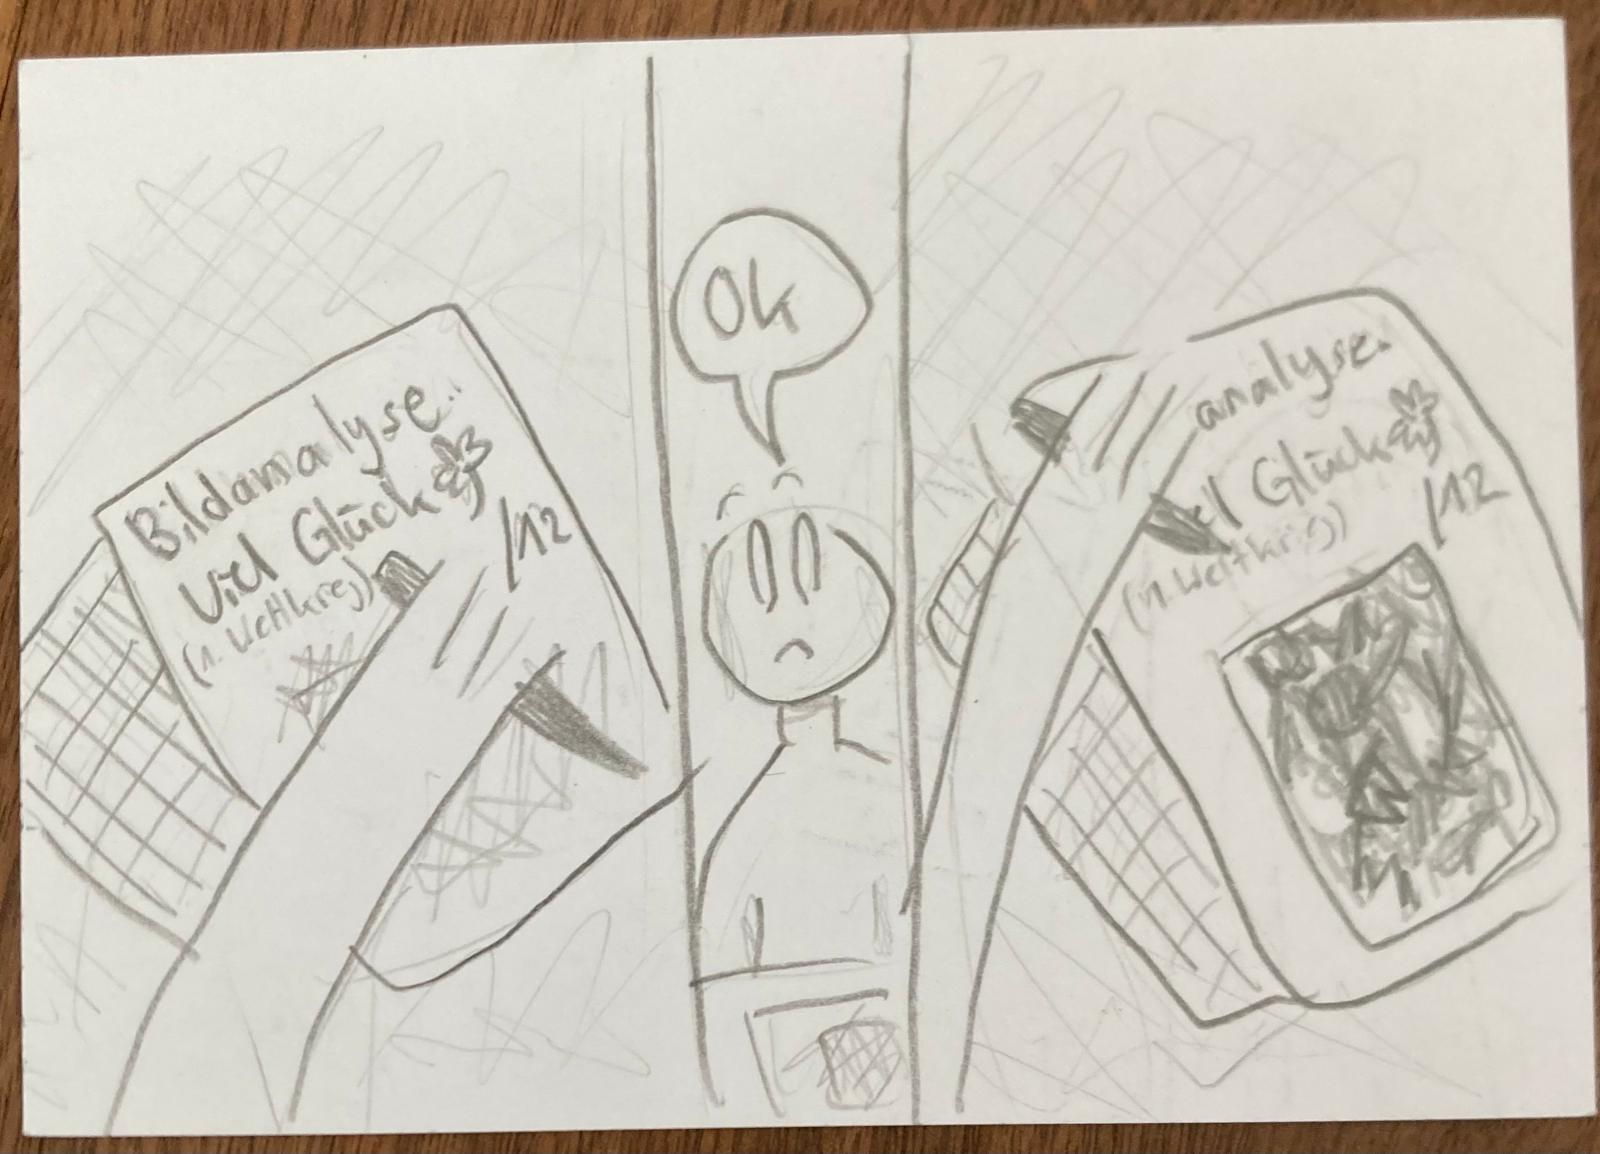 Bildanalyse.
Viel Glück
/12
(1. Weltkrieg)
Ok
analyse.
Glück
/12
(1. Weltkrieg)